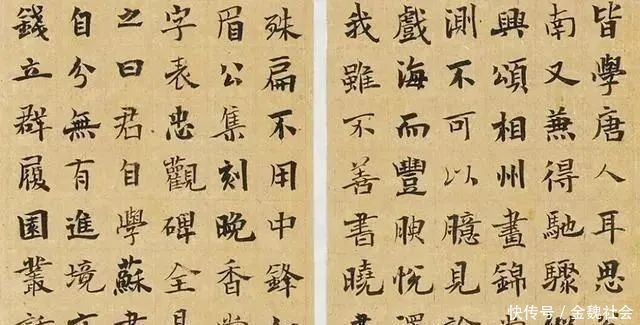 皆學唐人耳思
南又兼得馳驟
興頌相州畫錦
測不可以臆見
戲海而豐腴悅
我雖不善書曉
殊扁不用中鋒
眉公集刻晚香
字表忠觀碑全
之曰君自學蘇
自分無有進境
錢立群履園叢
快传号／金魏社会